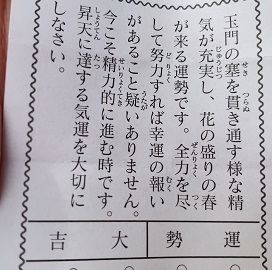 玉門の塞を貫き通す様な精
気が充実し、花の盛りの春
が来る運勢です。全力を尽
して努力すれば幸運の報い
があること疑いありません。
今こそ精力的に進む時です。
昇天に達する気運を大切に
しなさい。
運勢
大吉